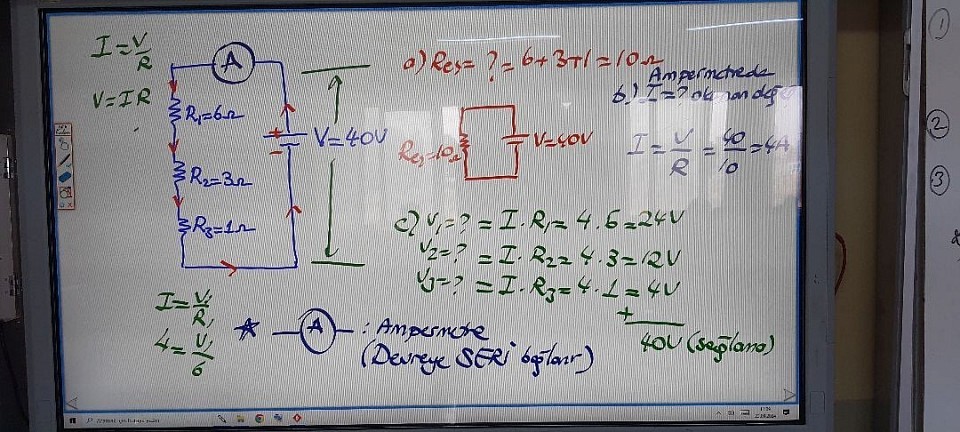 I = V/R
V = I R
A
R₁=6Ω
R₂=3Ω
R₃=1Ω
+
-
V=40V
a) Reş = ? = 6+3+1 = 10Ω
Reş=10Ω
V=40V
Ampermetrede
b) I = ? okunan değ
I = V/R = 40/10 = 4A
c) V₁=? = I . R₁ = 4 . 6 = 24V
V₂=? = I . R₂ = 4 . 3 = 12V
V₃=? = I . R₃ = 4 . 1 = 4V
+
40V (sağlama)
I = V₁/R₁
4 = V₁/6
A : Ampermetre
(Devreye SERİ bağlanır)
1
2
3